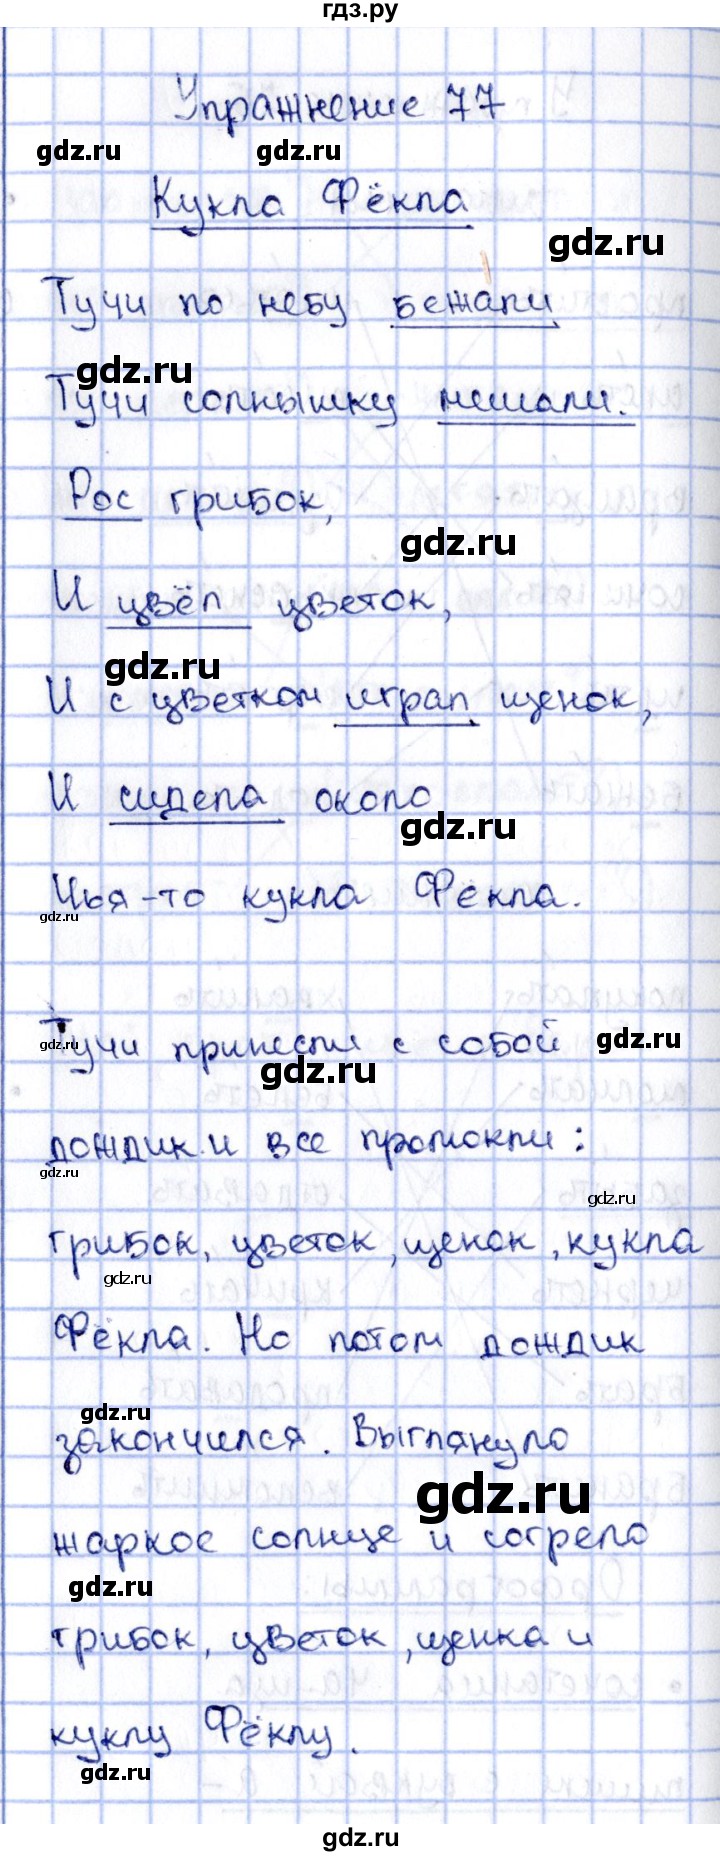 гдз.ру
Упражнение 77
gdz.ru gdz.ru
Кукла Фёкла
gdz.ru
Тучи по небу бежали
gdz.ru
Тучи солнышку мешали.
Рос грибок,
gdz.ru
И цвёл цветок,
gdz.ru
И с цветком играл щенок,
И сидела около
gdz.ru
Чья-то кукла Фёкла.
gdz.ru
Тучи принесли с собой
gdz.ru gdz.ru gdz.ru
дождик и все промокли:
gdz.ru gdz.ru
грибок, цветок, щенок, кукла
gdz.ru
Фёкла. Но потом дождик
gdz.ru
закончился. Выглянуло
gdz.ru
жаркое солнце и согрело
gdz.ru
грибок, цветок, щенка и
куклу Фёклу.
gdz.ru
gdz.ru